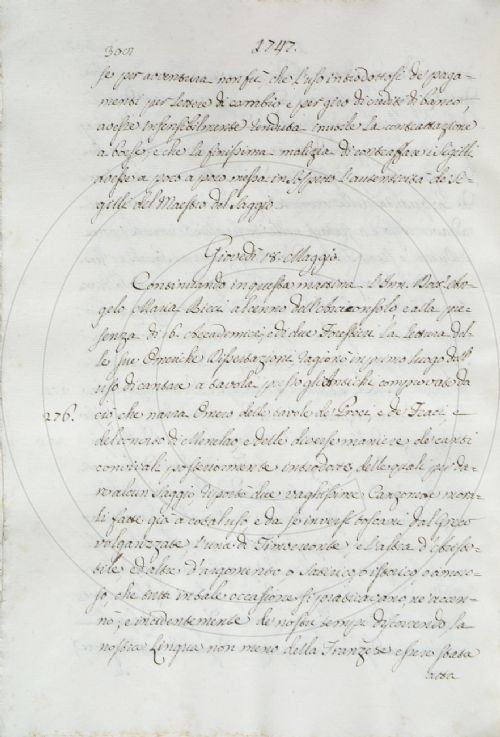 1747.
se per avventura non fu, che l'uso introdottosi de' paga-
menti per lettere di cambio e per giro di crediti di banco,
avesse insensibilmente renduta inutile la contrattazione
a borse, e che la finissima malizia di contraffare i Sigilli
avesse a poco a poco messa in sospetto l'autenticità de' Si-
gilli del Maestro del Saggio.
Giovedì 18. Maggio.
Continuando in questa mattina l'Ill. Dott. An-
gelo Maria Ricci a cenno dell'Arciconsolo, e alla pre-
senza di 16. Accademici, e di due Forestieri la lettura del-
le sue Omeriche Dissertazioni, ragionò in primo luogo dell'
uso di cantare a tavola presso gli Antichi comprovato da
276. ciò che narra Omero delle tavole de' Proci, e de' Feaci, e
del convito di Menelao, e delle diverse maniere de' canti
conviviali posteriormente introdotte, delle quali per da-
re alcun saggio riportò due vaghissime Canzonette mora-
li fatte già a cotal uso e da se in versi toscani dal Greco
volgarizzate, l'una di Timocreonte, e l'altra d'Aristo-
tile ed altre d'argomento o Satirico, o istorico, o amoro-
so, che tutte in tale occasione si praticavano, ne recen-
nò; e incidentemente de' nostri tempi discorrendo, la
nostra Lingua non meno della Franzese essere stata
atta